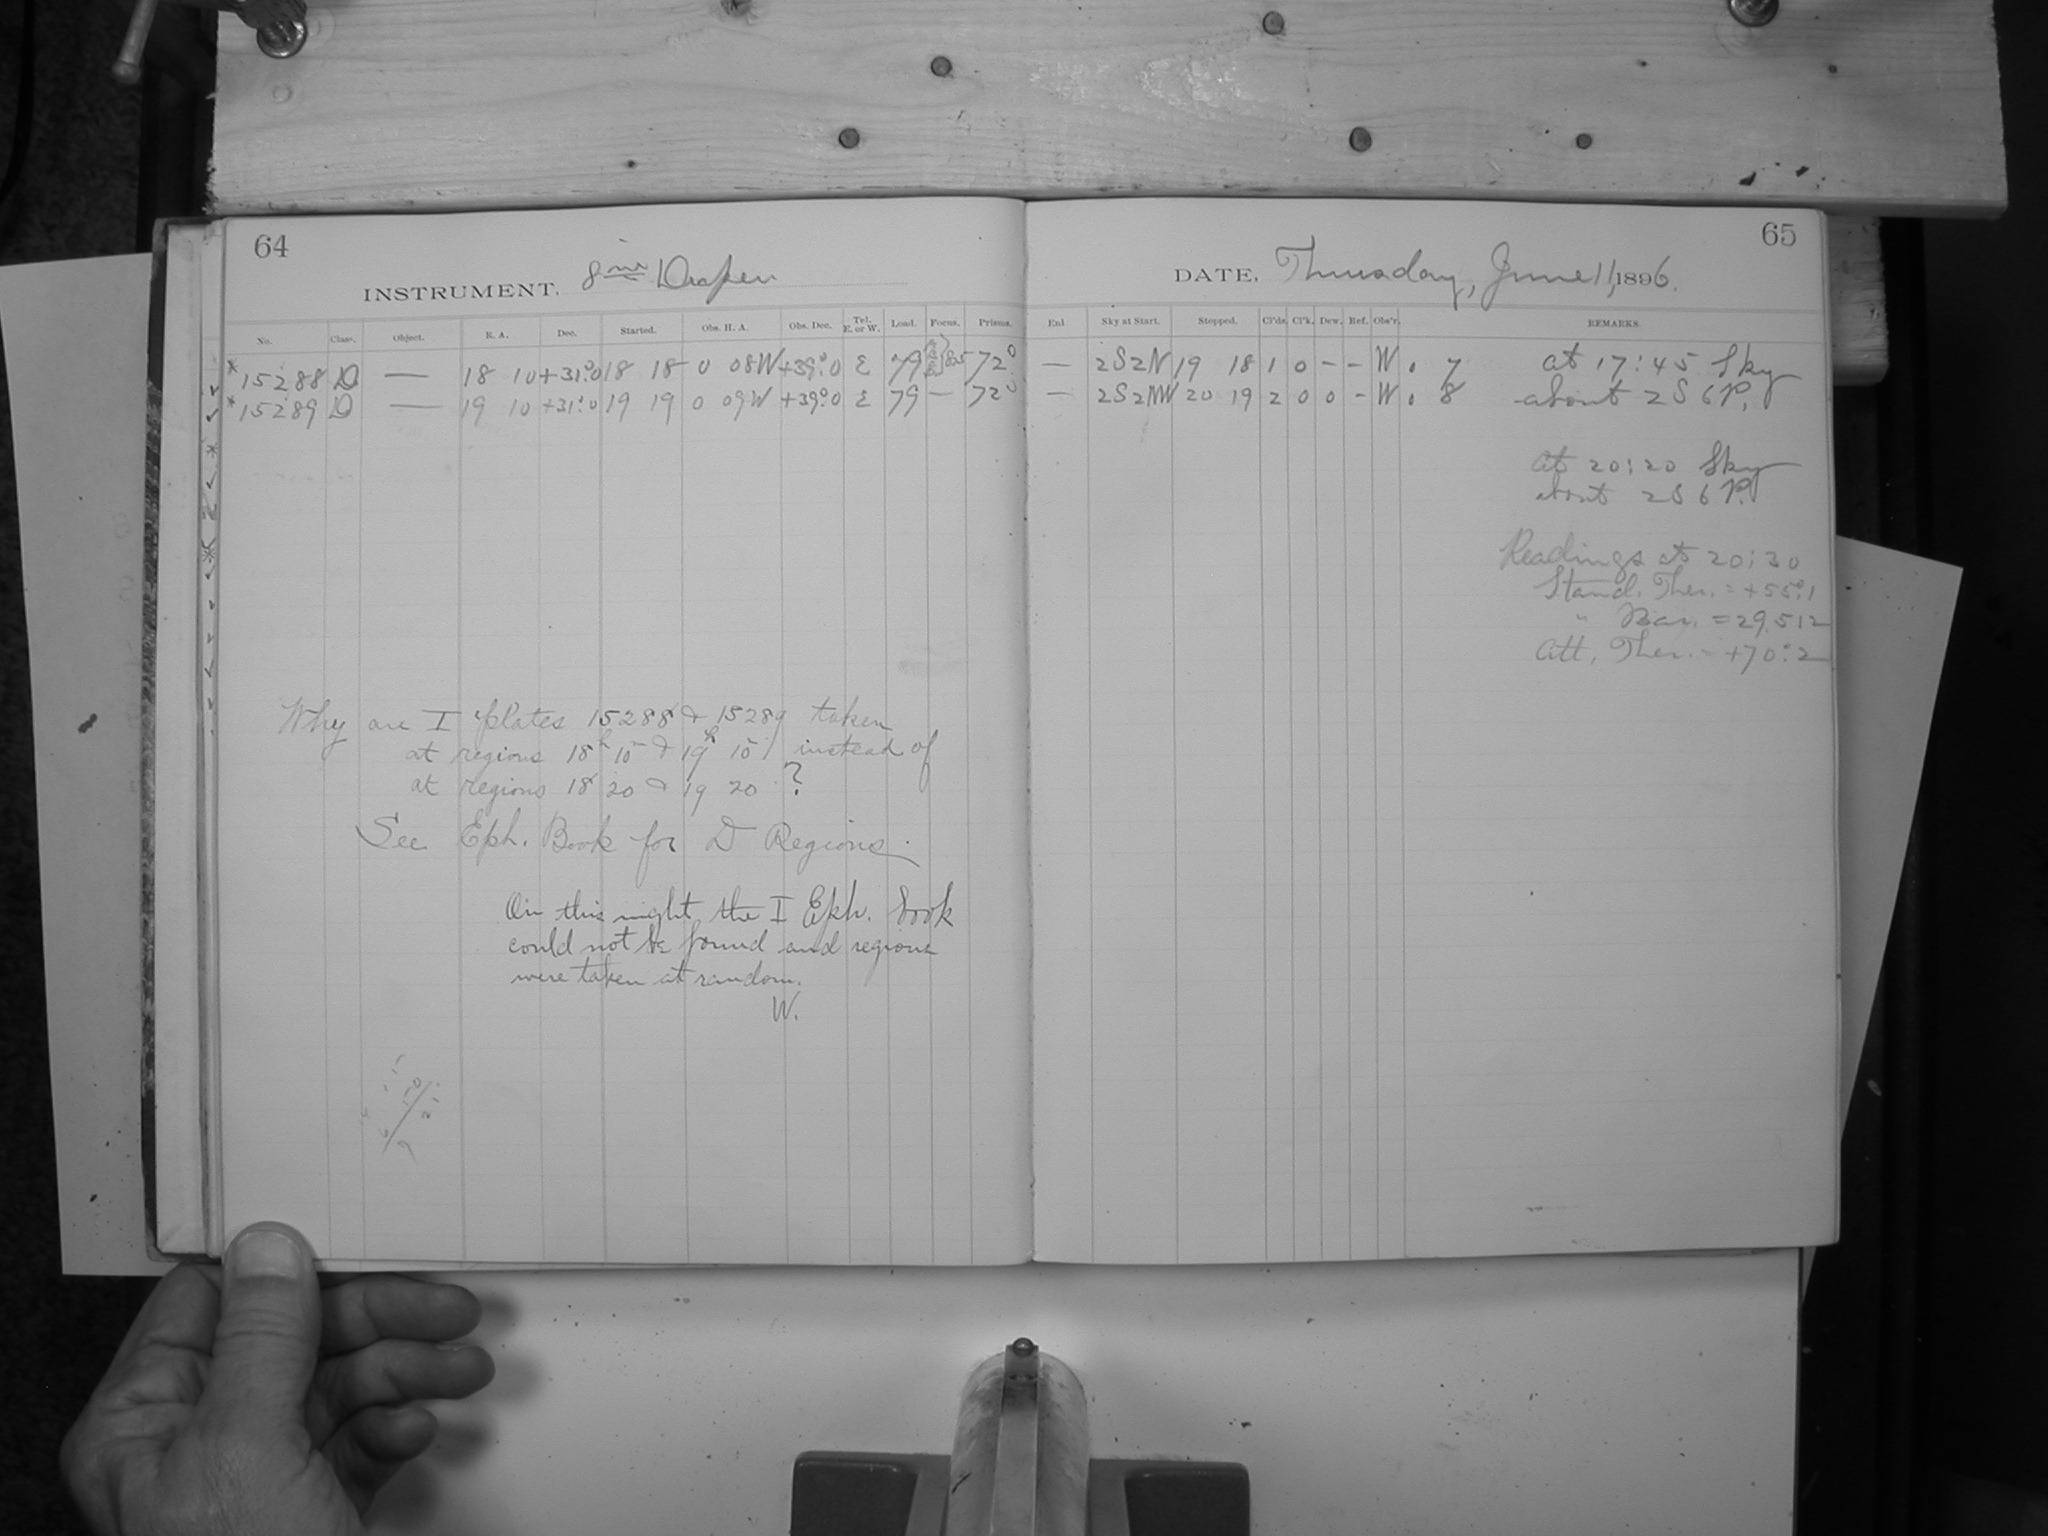 64
INSTRUMENT. 8 in Draper
No. Class. Object. R. A. Dec. Started. Obs. H. A. Obs. Dec. Tel. E. or W. Load. Focus. Prisms.
* 15288 D — 18 10 +31°.0 18 18 0 08W +39°.0 E 79 72°
* 15289 D — 19 10 +31°.0 19 19 0 09W +39°.0 E 79 — 72°
Why are I plates 15288 & 15289 taken
at regions 18h 10m & 19h 10 instead of
at regions 18 20 & 19 20 ?
See Eph. Book for D Regions.
On this night the I Eph. book
could not be found and regions
were taken at random.
W.
65
DATE, Thursday, June 11, 1896.
Enl Sky at Start. Stopped. Cl'ds. Cl'k. Dew. Ref. Obs'r. REMARKS.
— 2S2N 19 18 1 0 - - W . 7 at 17:45 Sky
— 2S2NW 20 19 2 0 0 - W . 8 about 2S 6P.
At 20:20 Sky
about 2S 6P.
Readings at 20:30
Stand. Ther. = +55°.1
" Bar. = 29.512
Att. Ther. = +70°.2